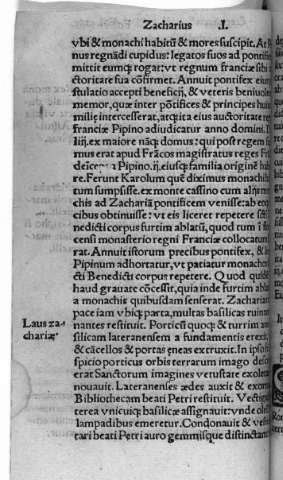 Zacharius .I.
vbi & monachi habitū & mores suscipit. At
nus regnādi cupidus: legatos suos ad pontifi
mittit eumq; rogat: vt regnum franciæ sibi
ctoritate sua cōfirmet. Annuit pontifex eius
stulatio accepti beneficij, & veteris beniuole
memor, quæ inter pōtifices & principes huiꝰ
miliȩ intercesserat, atq; ita eius auctoritate re
franciæ Pipino adiudicatur anno domini.
lij. ex maiore nāq; domus: qui post regem
mus erat apud Frācos magistratus reges
Pipino .ij. eiusq; familia originē
re. Ferunt Karolum quē diximus monach
tum sumpsisse. ex monte cassino cum
chis ad Zachariā pontificem venisse: ab eo
cibus obtinuisse: vt eis liceret repetere
nedicti corpus furtim ablatū, quod tum
censi monasterio regni Franciæ collocatum
rat. Annuit istorum precibus pontifex, &
Pipinum adhortatur, vt patiatur monach
cti Benedicti corpus repetere. Quod
haud grauate cōcessit, quia inde furtim abla
a monachis quibusdam senserat. Zachariaꝰ
pace iam vbiq; parta, multas basilicas ruinā
Laus za-
chariæ
nantes restituit. Porticū quoq; & turrim an
silicam lateranensem a fundamentis erexit,
& cācellos & portas æneas extruxit. In ipso
spicio porticus orbis terrarum imago
erat Sanctorum imagines vetustate exolet
nouauit. Lateranenses ædes auxit & exorna
Bibliothecam beati Petri restituit. Vectig
terea vnicuiq; basilicæ assignauit: vnde ole
lampadibus emeretur. Condonauit &
tari beati Petri auro gemmisque distinctam